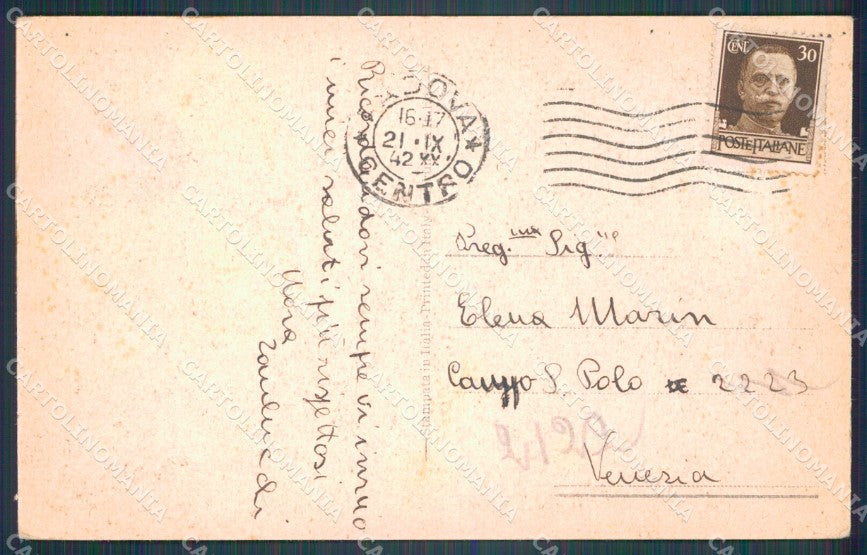 Ricordandovi sempre vi invio
i miei saluti più rispettosi
Nora
PADOVA
CENTRO
16-17
21·IX
42 XX
CENT. 30
POSTE ITALIANE
Preg.ma Sig.na
Elena Marin
Campo S. Polo 2223
Venezia
Stampata in Italia - Printed in Italy
CARTOLINOMANIA